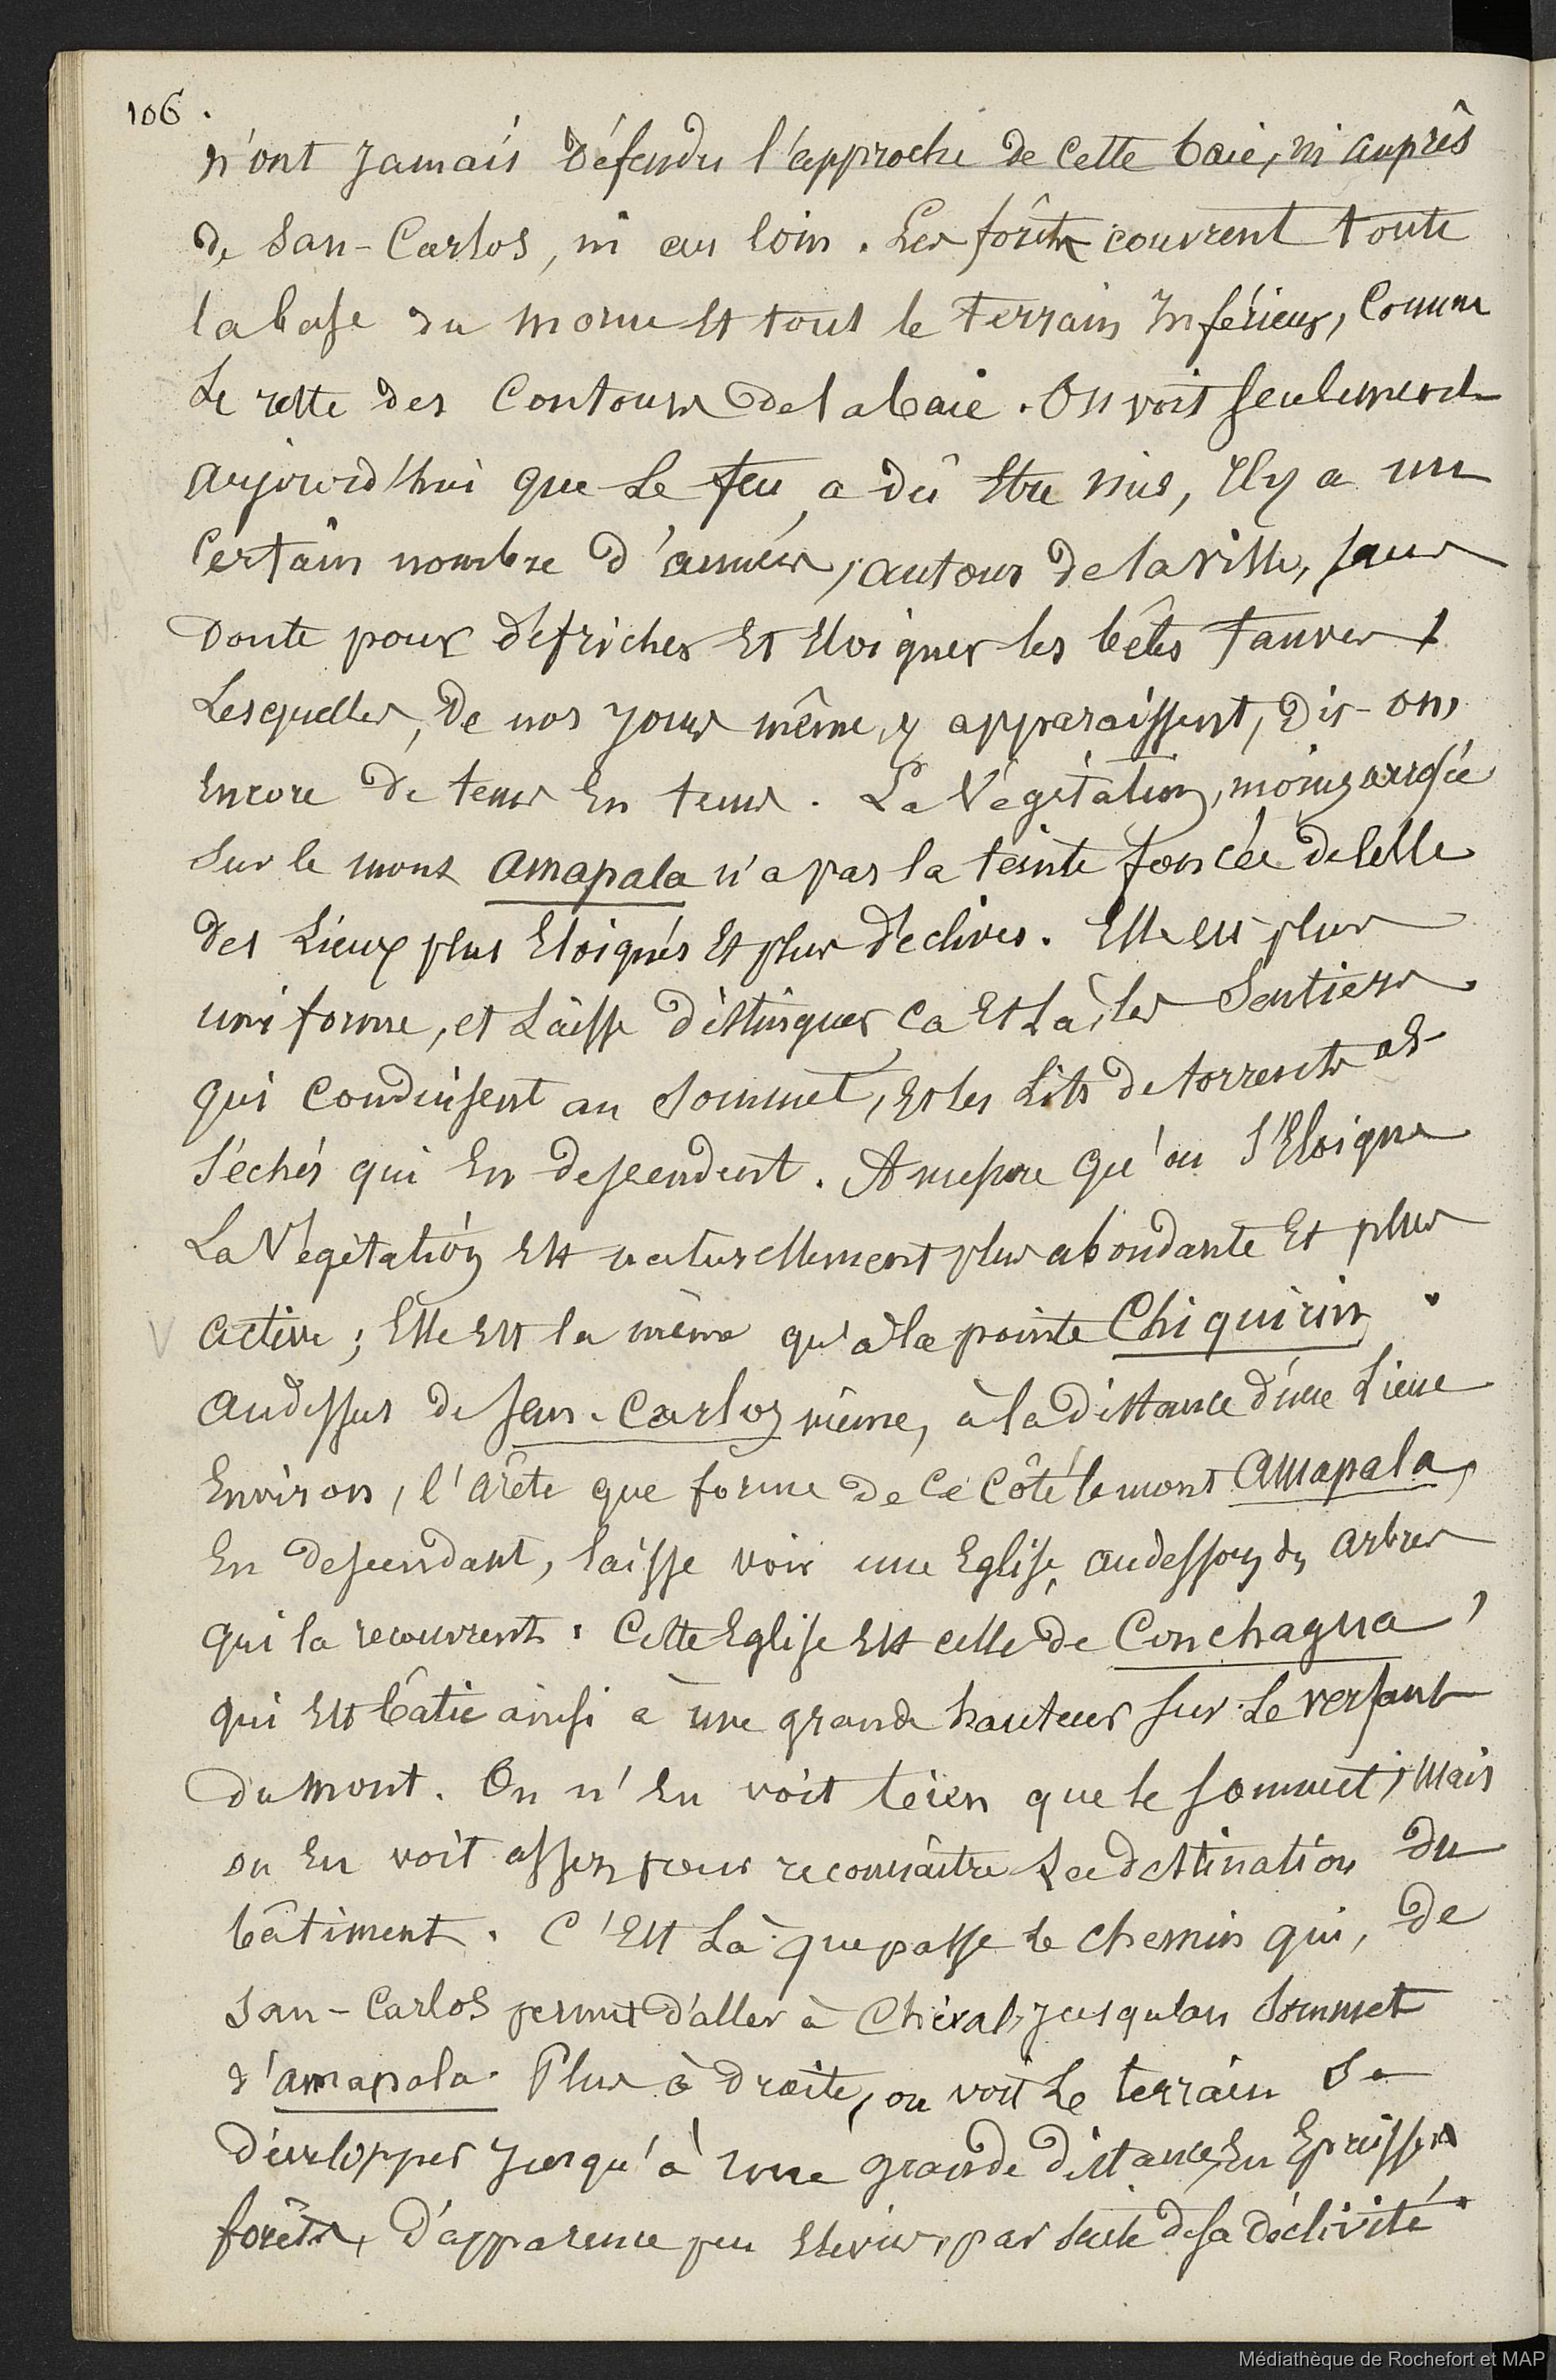 106.
n'ont Jamais défendu l'approche de Cette baie, ni auprès
de San-Carlos, ni au loin. Les forêts couvrent toute
la base du morne Et tout le terrain Inférieur, Comme
Le reste des Contours de la baie. On voit seulement
aujourd'hui que Le feu a dû Etre mis, Il y a un
Certain nombre d'années, autour de la ville, sans
Doute pour défricher Et Eloigner les bêtes fauves
Lesquelles, de nos jours même, y apparaissent, dit-on,
Encore de tems En tems. La Végétation, moins
Sur le mont Amapala n'a pas la teinte foncée de Celle
des Lieux plus Eloignés Et plus déclives. Elle Est plus
uniforme, et Laisse distinguer ça Et Là, les Sentiers
qui Conduisent au Sommet, Et les Lits de torrents as-
séchés qui En descendent. A mesure qu'on S'Eloigne
La Végétation Est naturellement plus abondante Et plus
active; Elle Est la même qu'à la pointe Chiquirin
Audessus de San-Carlos même, à la distance d'une Lieue
Environ, l'arête que forme de Ce Côté le mont Amapala,
En descendant, laisse voir une Eglise, audessous des arbres
qui la recouvrent. Cette Eglise Est celle de Conchagua,
qui Est bâtie ainsi à une grande hauteur sur Le versant
du mont. On n'En voit bien que le sommet, mais
on En voit assez pour reconnaître La destination du
bâtiment. C'Est Là que passe le Chemin qui, de
San-Carlos permet d'aller à Cheval, jusqu'au Sommet
d'Amapala. Plus à droite, on voit Le terrain Se
développer Jusqu'à une grande distance, En Epaisses
forêts, d'apparence peu Elevées, par suite de sa déclivité
Médiathèque de Rochefort et MAP